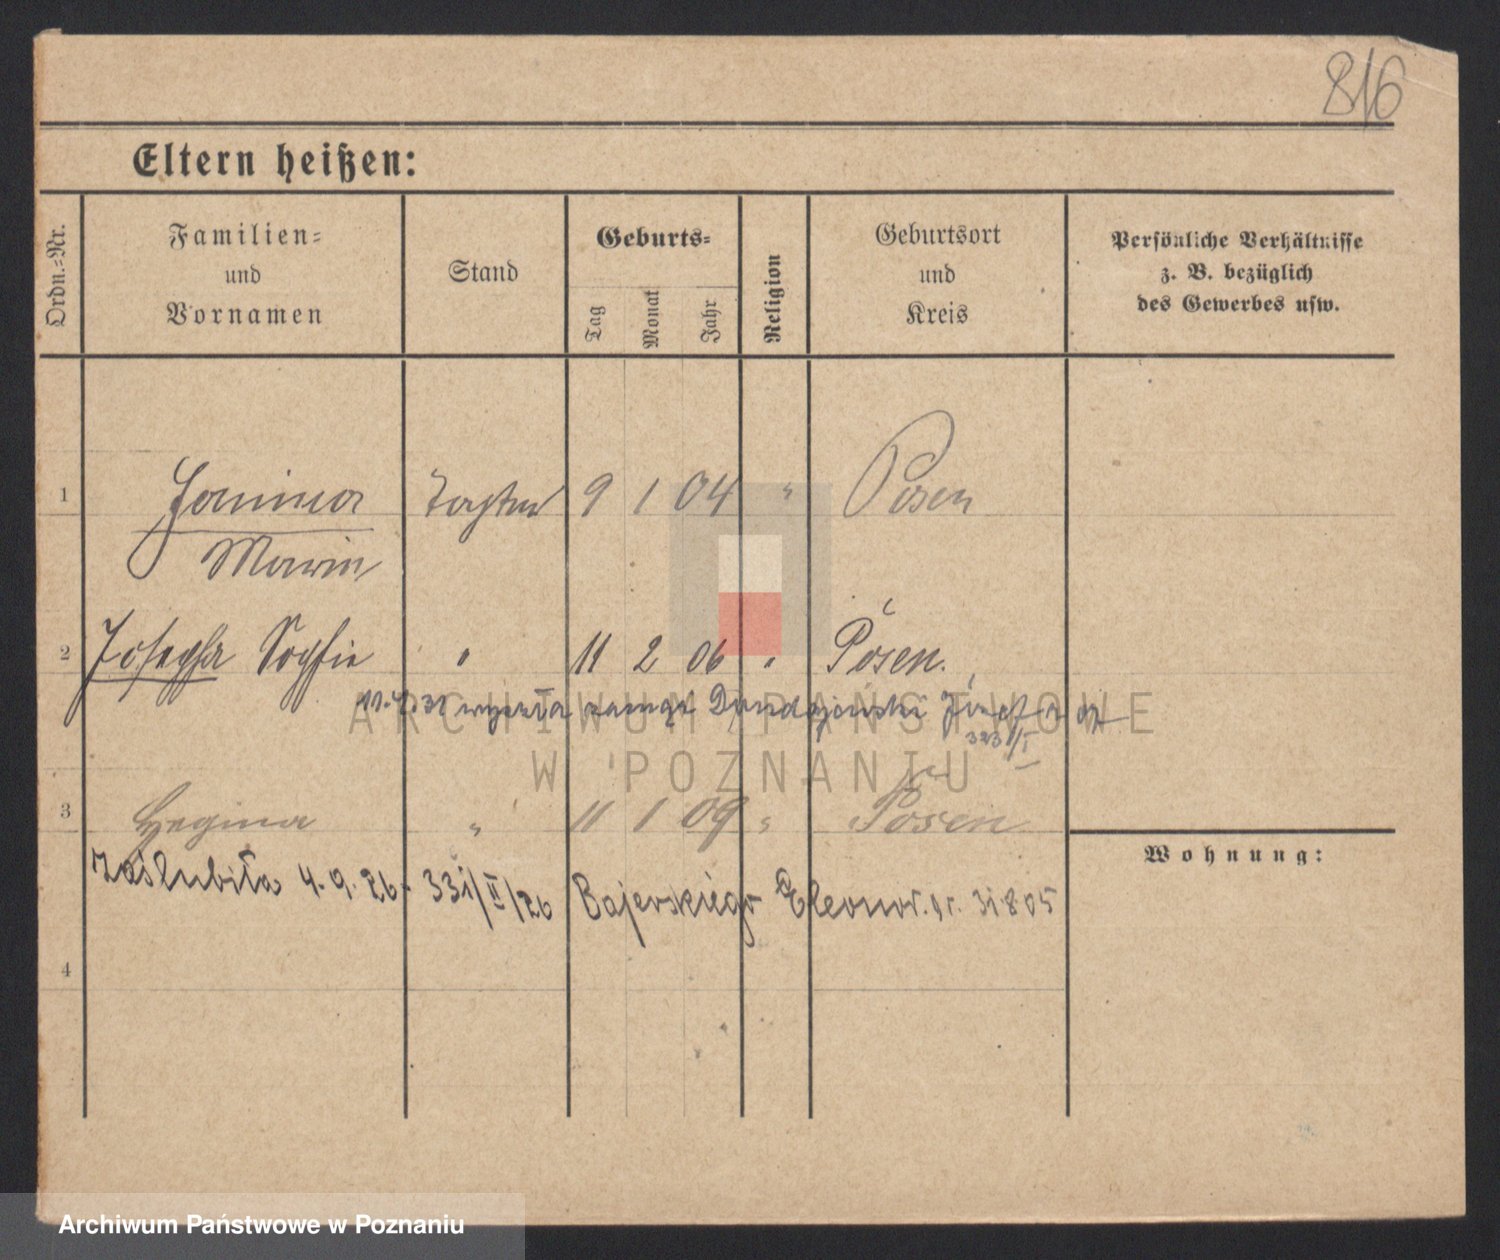 816
Eltern heißen:
Ordn.-Nr.
Familien-
und
Vornamen
Stand
Geburts-
Tag
Monat
Jahr
Religion
Geburtsort
und
Kreis
Persönliche Verhältnisse
z. B. bezüglich
des Gewerbes usw.
1 Janina Tochter 9 1 04 " Posen
Marie
2 Josepha Sophie " 11 2 06 " Posen.
wyszła zamąż Józef
3 Regina " 11 1 09 " Posen
Zaślubiła 4.9.26. 331/II/26 Bajerskiego Eleonor. 31 8 05
Wohnung:
4
ARCHIWUM PAŃSTWOWE
W POZNANIU
Archiwum Państwowe w Poznaniu